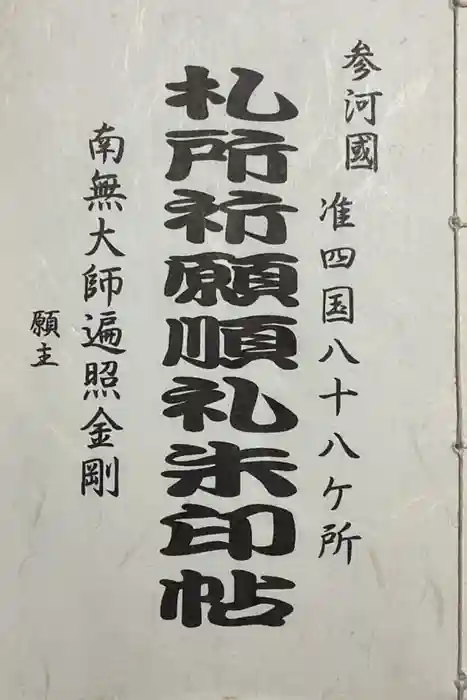 参河國
准四国八十八ケ所
札所祈願順礼朱印帖
南無大師遍照金剛
願主